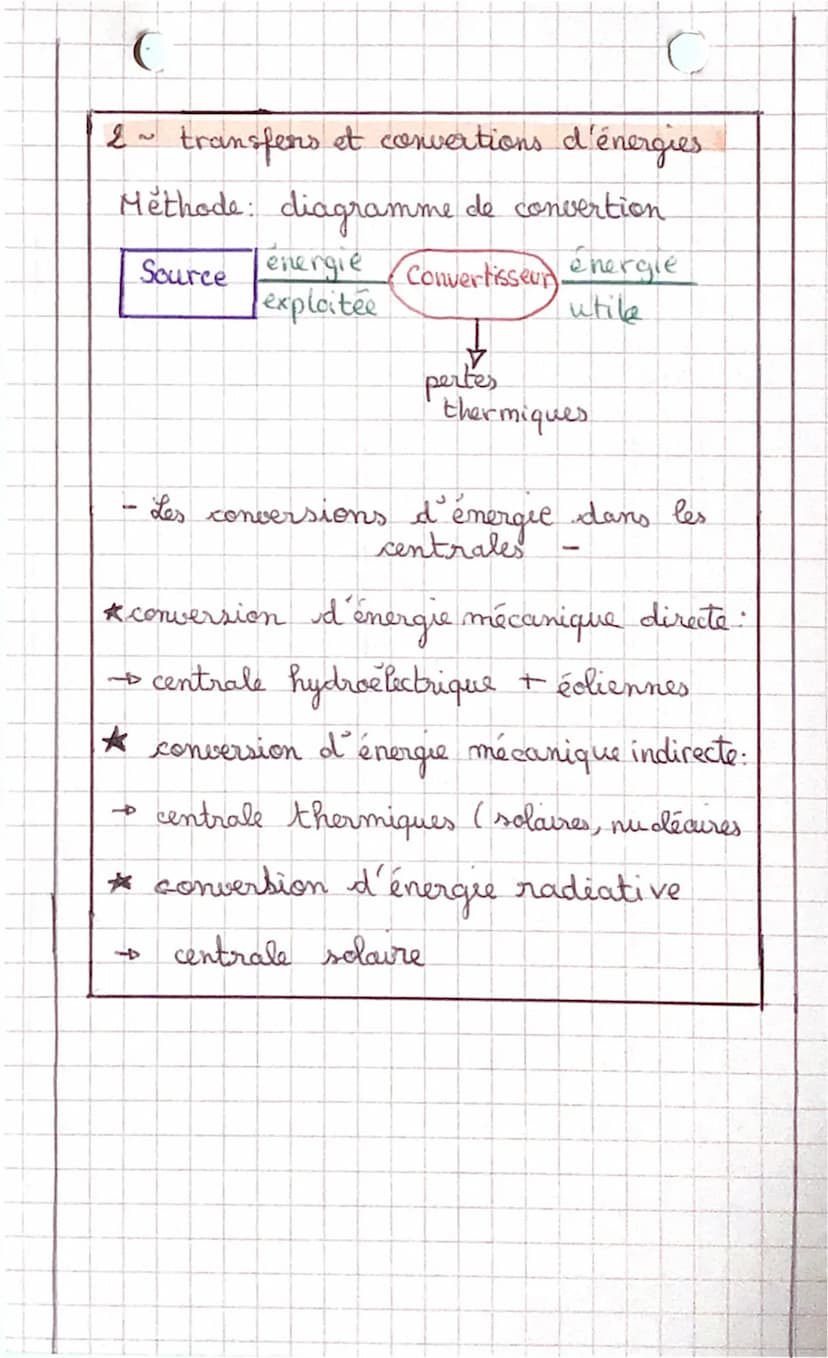 2 ~ transfers et convertions d'énergies
Méthode: diagramme de convertion
Source énergie exploitée Convertisseur énergie utile
pertes
thermiques
- Les conversions d'énergie dans les
centrales -
★ conversion d'énergie mécanique directe:
→ centrale hydroélectrique + éoliennes
★ conversion d'énergie mécanique indirecte:
→ centrale thermiques (solaires, nucléaires
★ conversion d'énergie radiative
→ centrale solaire